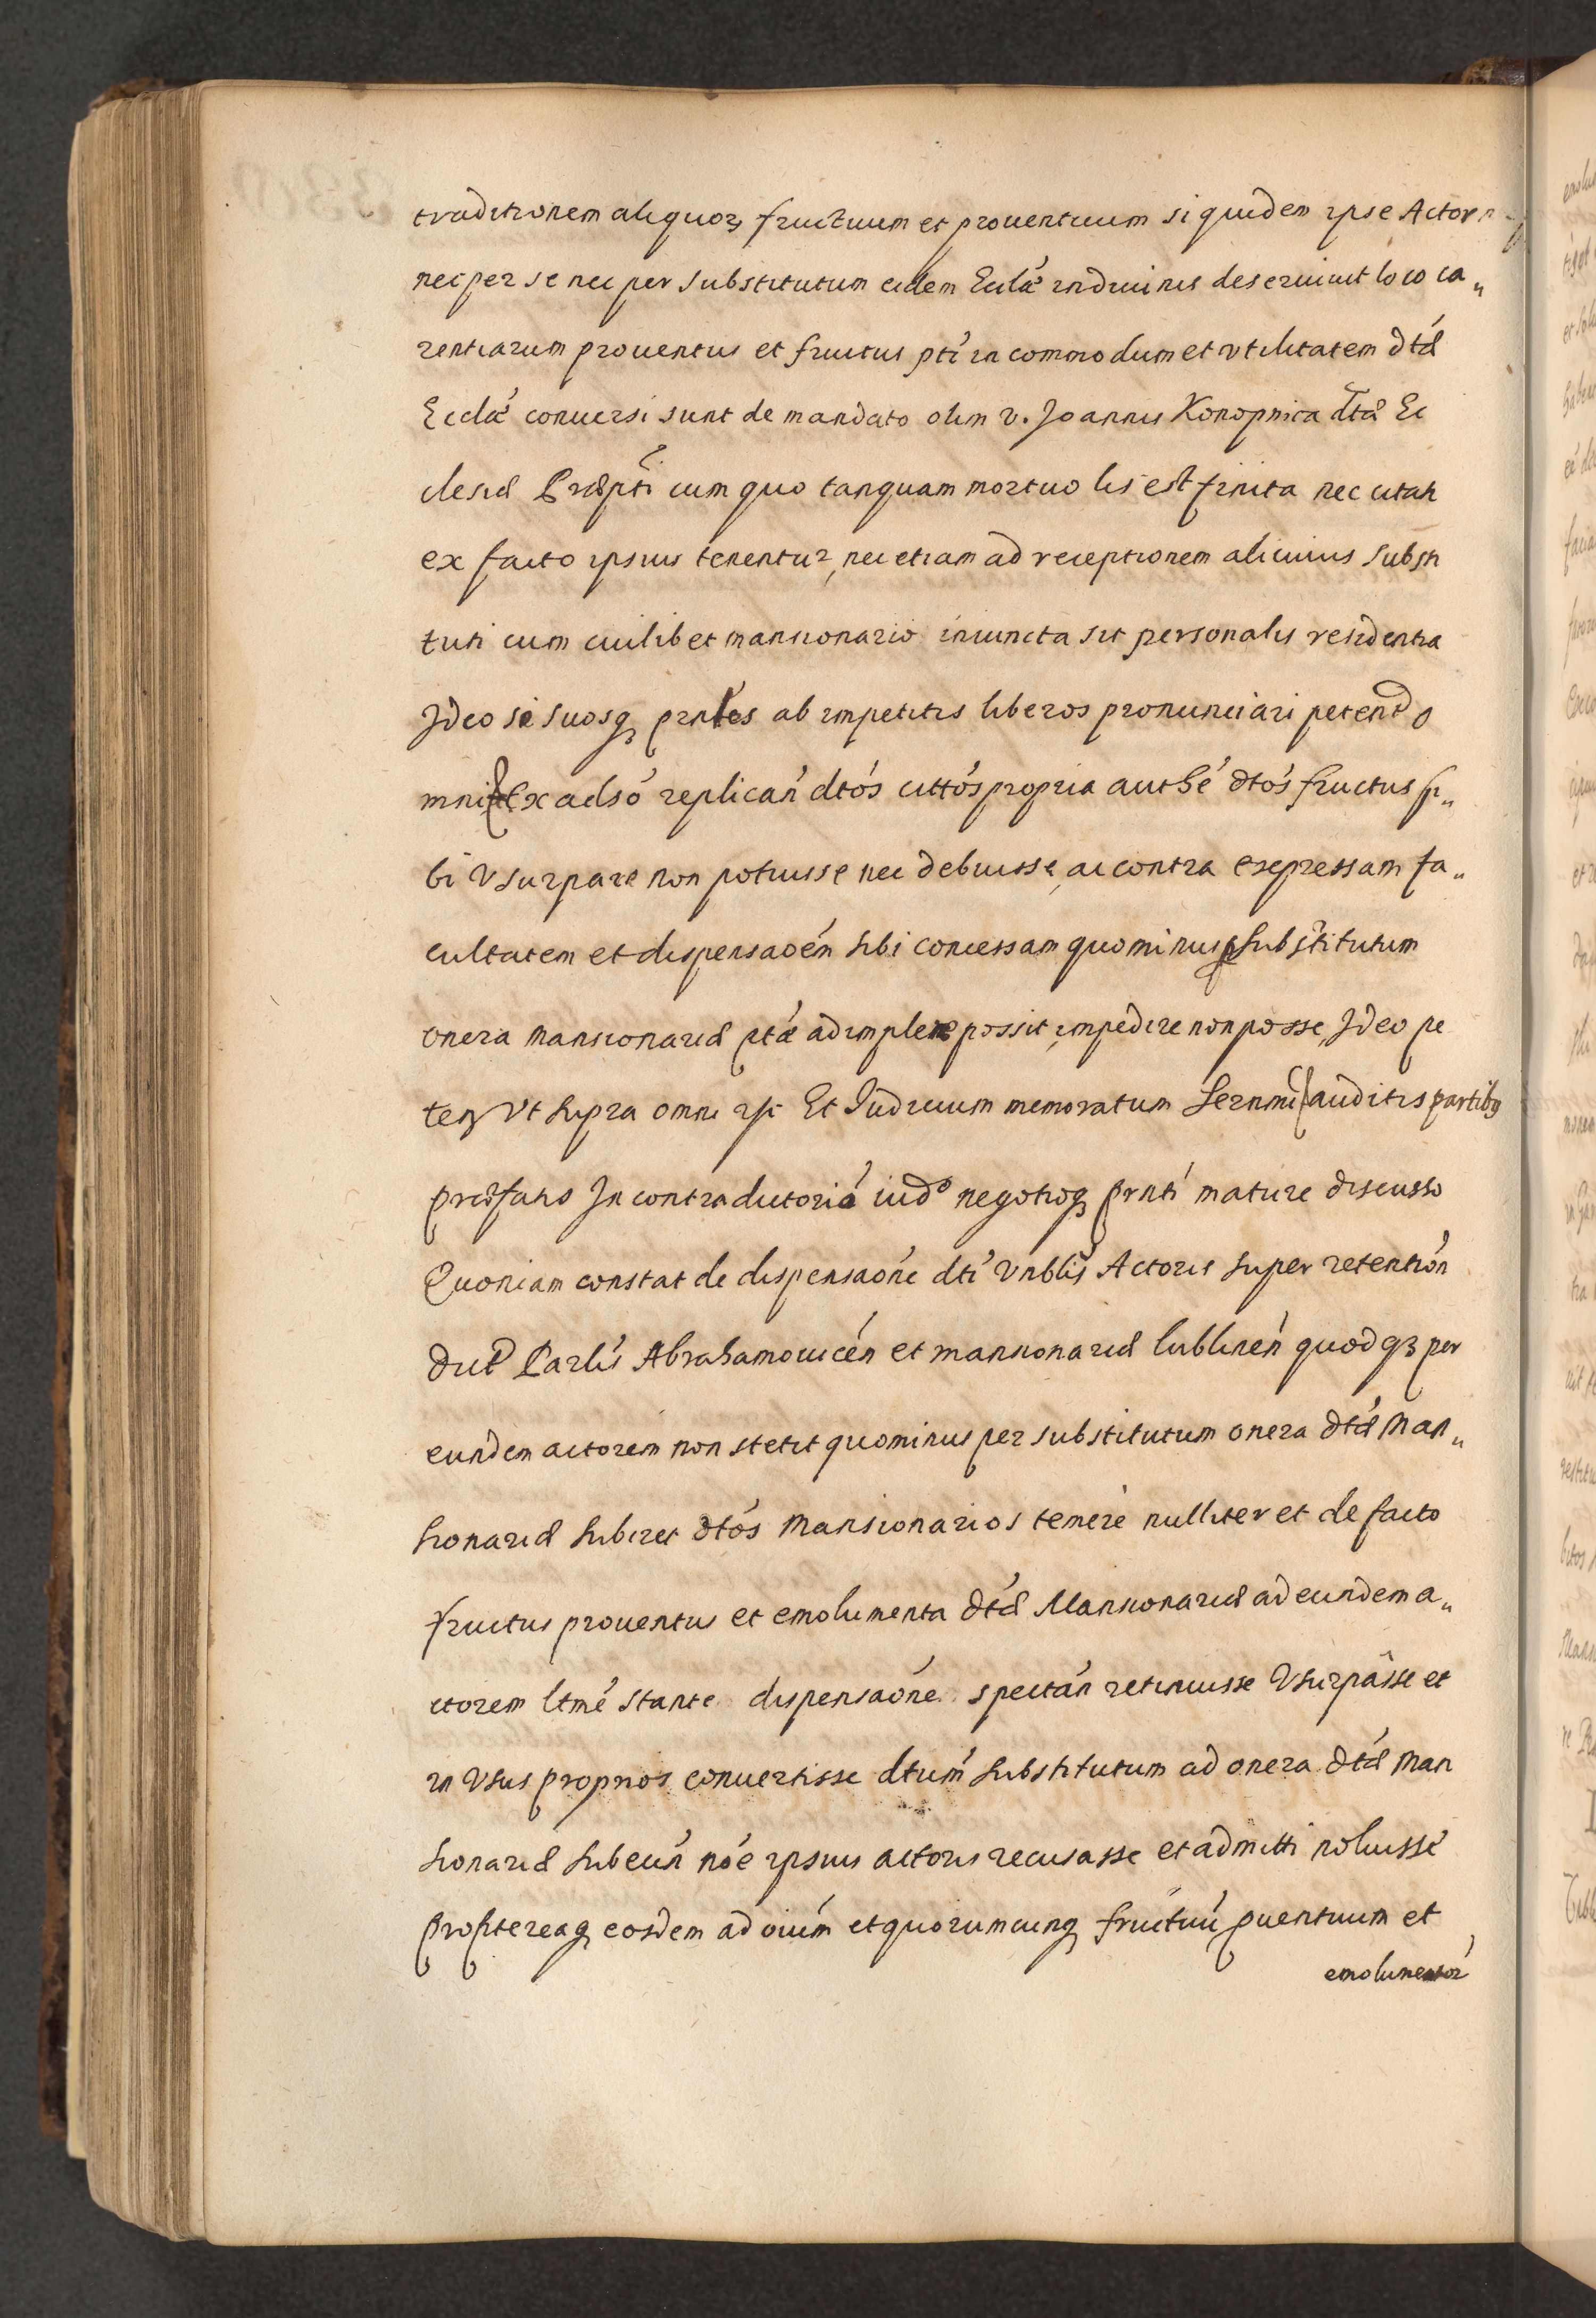 traditionem aliquorꝫ fructuum et prouentuum siquidem ipse Actor
nec per se nec per substitutum eidem Eclæ in diuinis deseruiuit loco ca„
rentiarum prouentus et fructus pti in commodum et vtilitatem dtæ
Eclæ conuersi sunt de mandato olim v. Joannis Konopnica dtæ Ec
clesiæ Præpti cum quo tanquam mortuo lis est finita nec citati
ex facto ipsius tenentur, nec etiam ad receptionem alicuius substi
tuti cum cuilibet mansionario iniuncta sit personalis residentia
Ideo se suosqꝫ prntes ab impetitis liberos pronunciari petend o
mni Ex adso replicań dtos cittos propria authe dtos fructus si„
bi Vsurpare non potuisse nec debuisse, ac contra expressam fa„
cultatem et dispensaoem sibi concessam quominus substitutum
onera mansionariæ ptæ adimplere possit, impedire non posse, Ideo pe
ten Vt supra omni Et Iudicium memoratum Sernmi auditis partibꝰ
præfatis In contradictorio iudo negotioqꝫ prnti mature discusso
Quoniam constat de dispensaone dti Vnblis Actoris super retention
dict Parlis Abrahamouiceń et mansionariæ lublineń quodqꝫ per
eundem actorem non stetit quominus per substitutum onera dtæ Man„
sionariæ subiret dtos Mansionarios temere nulliter et de facto
fructus prouentus et emolumenta dtæ Mansionariæ ad eundem a„
ctorem ltme stante dispensaone spectań retinuisse Vsurpasse et
in Vsus proprios conuertisse dtum substitutum ad onera dtæ Man
sionariæ subeuń noe ipsius actoris recusasse et admitti noluisse
proptereaqꝫ eosdem ad oium et quorumcunqꝫ fructuu puentuum et
emolumentor